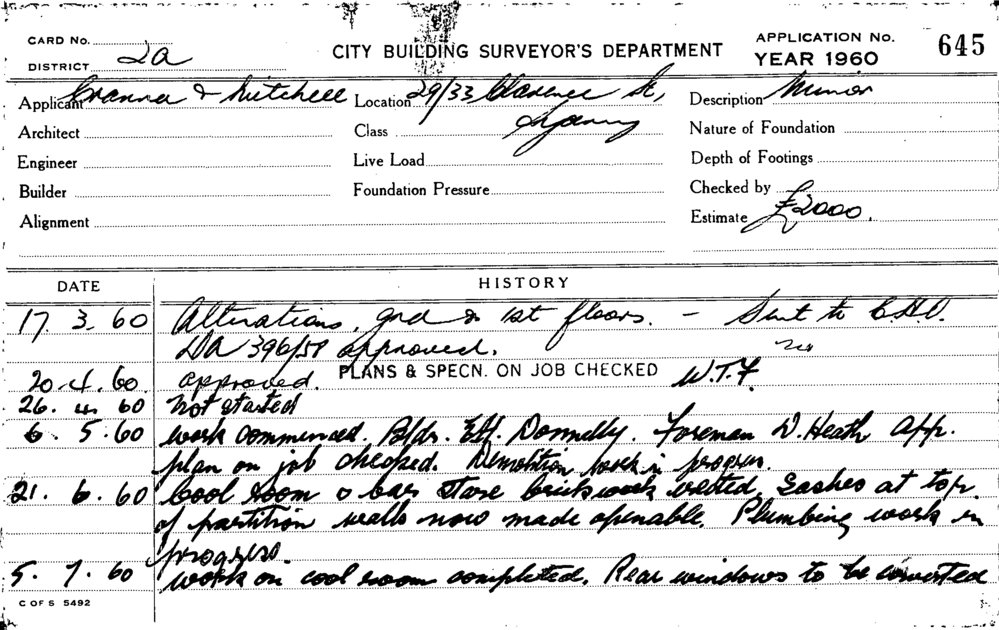 CARD No.
DISTRICT 2a
CITY BUILDING SURVEYOR'S DEPARTMENT
APPLICATION No. 645
YEAR 1960
Applicant Cranna & Mitchell
Location 29/33 Clarence St,
Sydney
Description Minor
Architect
Class
Nature of Foundation
Engineer
Live Load
Depth of Footings
Builder
Foundation Pressure
Checked by
Alignment
Estimate £2000.
DATE HISTORY
17. 3. 60 Alterations, gnd & 1st floors. - Sent to C.H.O.
DA 396/59 approved.
20. 4. 60. approved. PLANS & SPECN. ON JOB CHECKED W.T.F.
26. 4. 60 Not started
6. 5. 60 Work commenced. Bldr. Donnelly. Foreman D. Heath App.
plan on job checked. Demolition work in progress.
21. 6. 60 Cool room & bar store brickwork vented. Sashes at top
of partition walls now made openable. Plumbing work in
progress.
5. 7. 60 Work on cool room completed. Rear windows to be converted
C OF S 5492